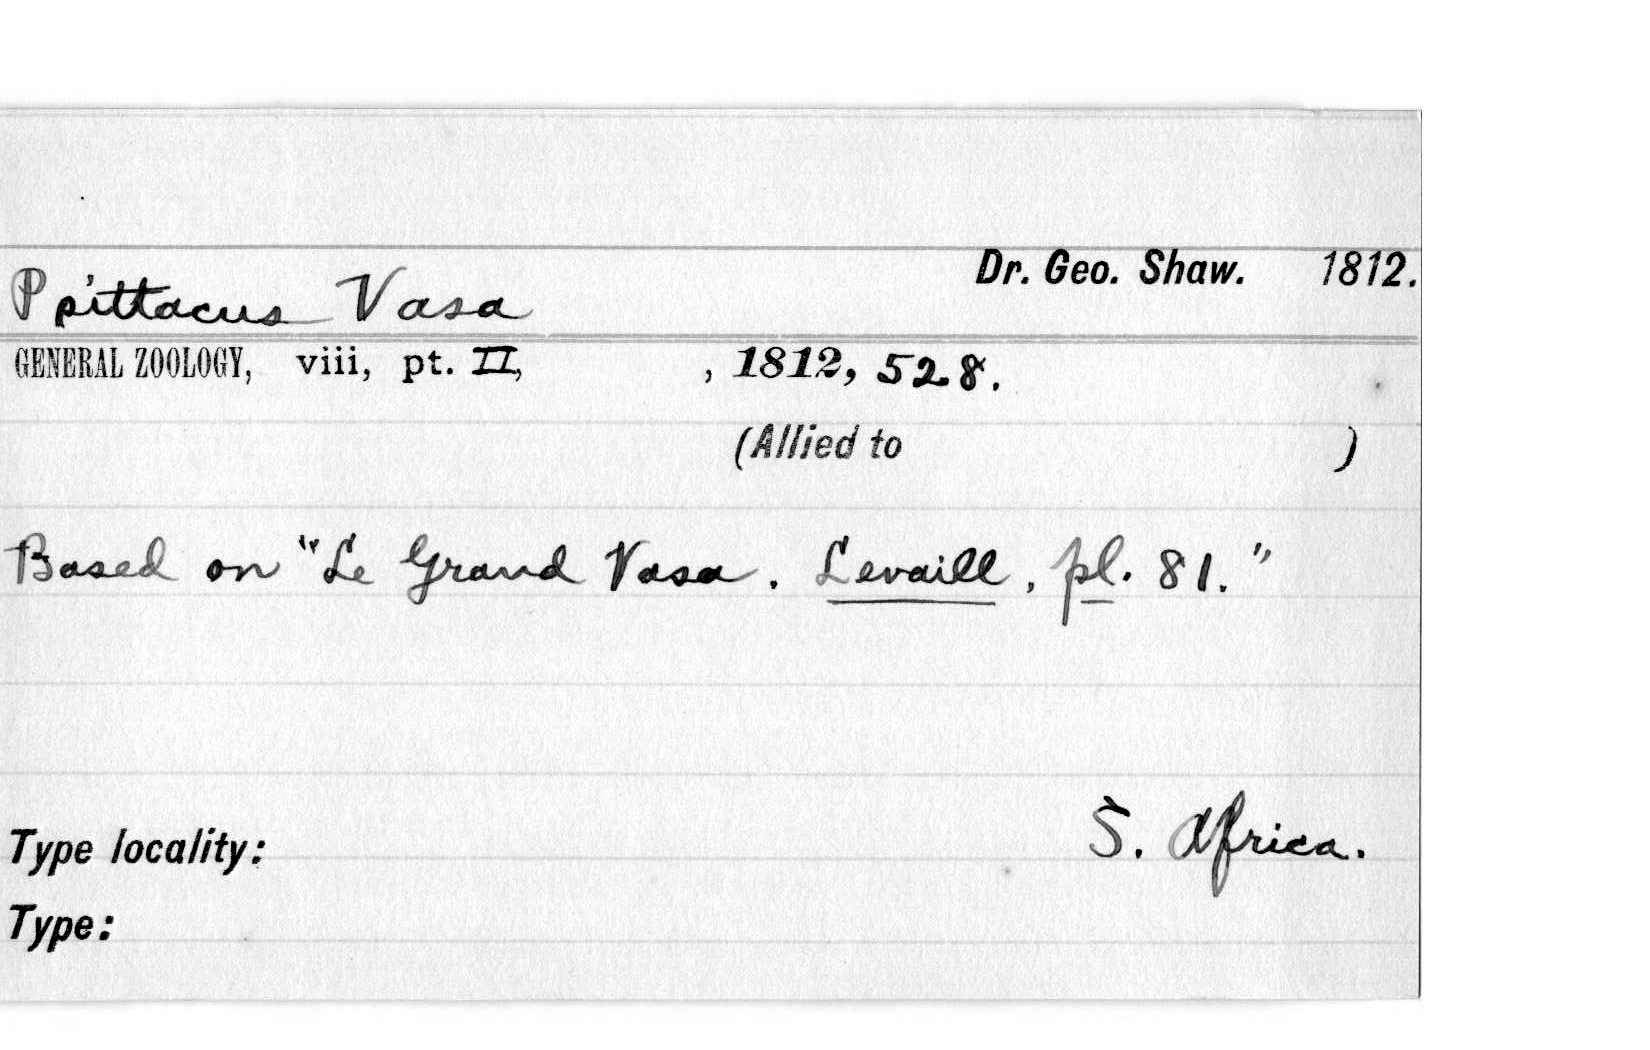 Psittacus Vasa Dr. Geo. Shaw. 1812.
GENERAL ZOOLOGY, viii, pt. II, , 1812, 528.
(Allied to )
Based on "Le Grand Vasa. Levaill, pl. 81."
Type locality: S. Africa.
Type: